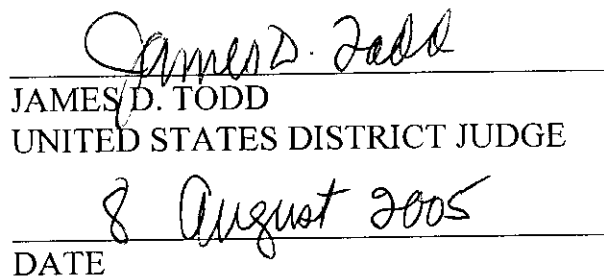 James D. Todd
JAMES D. TODD
UNITED STATES DISTRICT JUDGE
8 August 2005
DATE